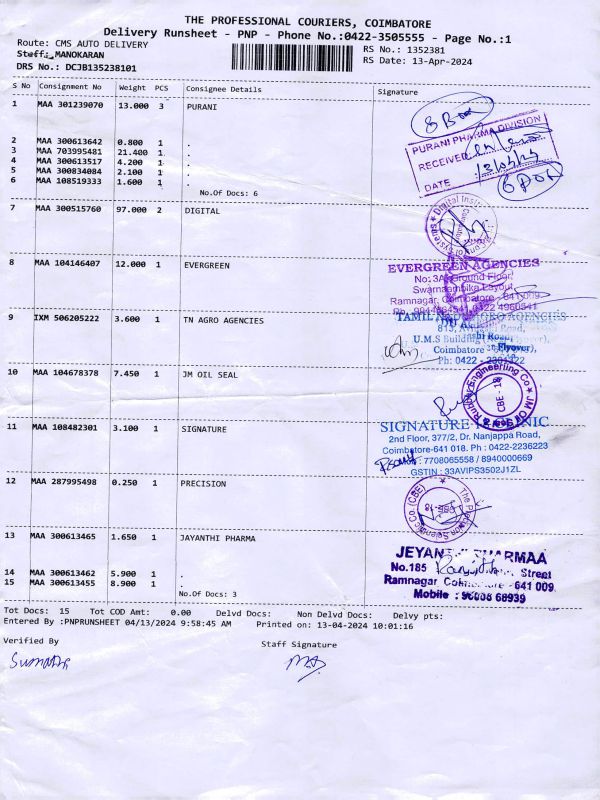 THE PROFESSIONAL COURIERS, COIMBATORE
Delivery Runsheet - PNP - Phone No.:0422-3505555 - Page No.:1
Route: CMS AUTO DELIVERY
RS No.: 1352381
Staff: MANOKARAN
RS Date: 13-Apr-2024
DRS No.: DCJB135238101
S No Consignment No Weight PCS Consignee Details Signature
1 MAA 301239070 13.000 3 PURANI
8 Box
PURANI PHARMA DIVISION
RECEIVED
DATE
6 BOX
2 MAA 300613642 0.800 1 .
3 MAA 703995481 21.400 1 .
4 MAA 300613517 4.200 1 .
5 MAA 300834084 2.100 1 .
6 MAA 108519333 1.600 1 .
No.Of Docs: 6
7 MAA 300515760 97.000 2 DIGITAL
8 MAA 104146407 12.000 1 EVERGREEN
EVERGREEN AGENCIES
No: 3A, Ground Floor,
Swarnaambika Layout,
Ramnagar, Coimbatore - 641 009
9 IXM 506205222 3.600 1 TN AGRO AGENCIES
TAMIL NADU AGRO AGENCIES
U.M.S Building
Coimbatore
Ph: 0422 -
10 MAA 104678378 7.450 1 JM OIL SEAL
CBE - 18
11 MAA 108482301 3.100 1 SIGNATURE
SIGNATURE CLINIC
2nd Floor, 377/2, Dr. Nanjappa Road,
Coimbatore-641 018. Ph : 0422-2236223
: 7708065558 / 8940000669
GSTIN : 33AVIPS3502J1ZL
12 MAA 287995498 0.250 1 PRECISION
The Precision Scientific Co. (CBE)
CBE-18
13 MAA 300613465 1.650 1 JAYANTHI PHARMA
JEYANTHI PHARMAA
No.185 Street
Ramnagar Coimbatore - 641 009
Mobile : 98088 68939
14 MAA 300613462 5.900 1 .
15 MAA 300613455 8.900 1 .
No.Of Docs: 3
Tot Docs: 15 Tot COD Amt: 0.00 Delvd Docs: Non Delvd Docs: Delvy pts:
Entered By :PNPRUNSHEET 04/13/2024 9:58:45 AM Printed on: 13-04-2024 10:01:16
Verified By Staff Signature